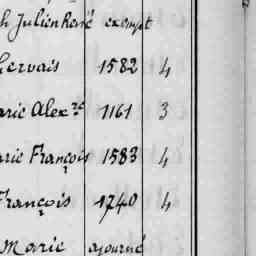 h Julien René exempt
Gervais 1582 4
arie Alex.re 1161 3
arie François 1583 4
François 1740 4
Marie ajourné